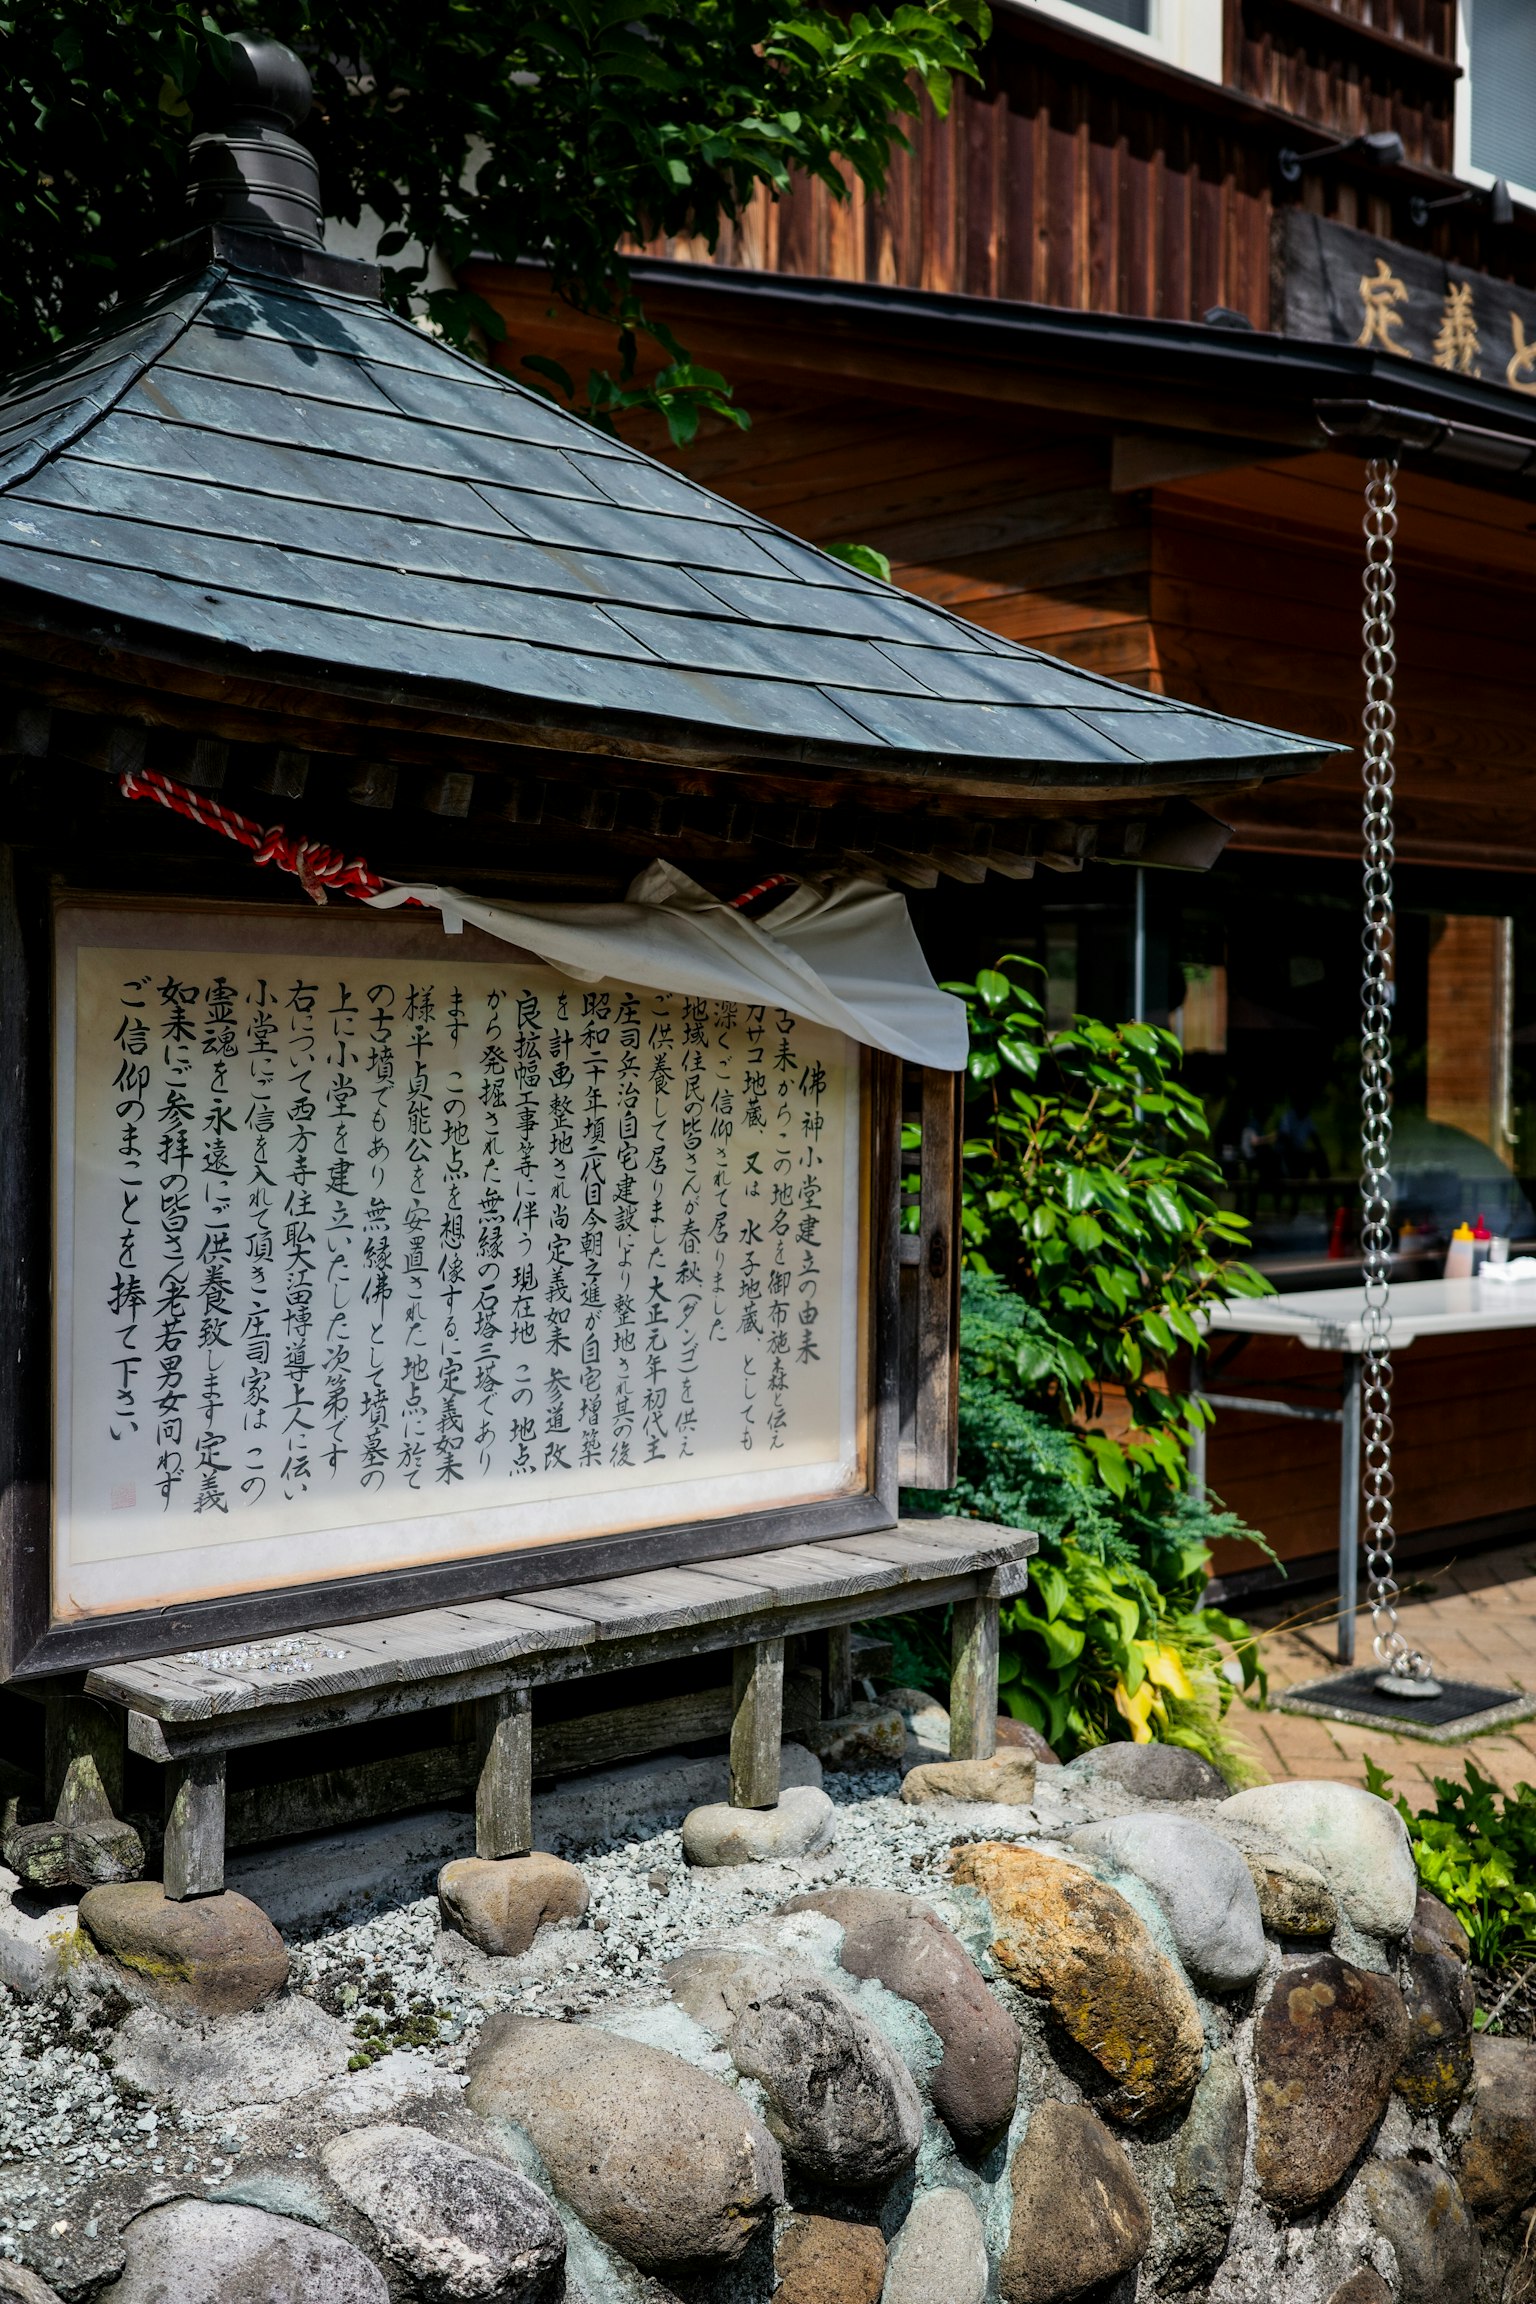 佛神小堂建立の由来
古来からこの地名を御布施森と伝え
カサコ地蔵、又は 水子地蔵、としても
深くご信仰されて居りました
地域住民の皆さんが春、秋、(ダンゴ)を供え
ご供養して居りました大正元年初代主
庄司兵治自宅建設により整地され其の後
昭和二十年頃二代目今朝之進が自宅増築
を計画整地され尚定義如来 参道改
良拡幅工事等に伴う現在地 この地点
から発掘された無縁の石塔三塔であり
ます この地点を想像するに定義如来
様平貞能公を安置された地点に於て
の古墳でもあり 無縁佛として墳墓の
上に小堂を建立いたした次第です
右について西方寺住職大江田博導上人に伝い
小堂にご信を入れて頂き庄司家は この
霊魂を永遠にご供養致します 定義
如来にご参拝の皆さん老若男女問わず
ご信仰のまことを捧て下さい
定義と